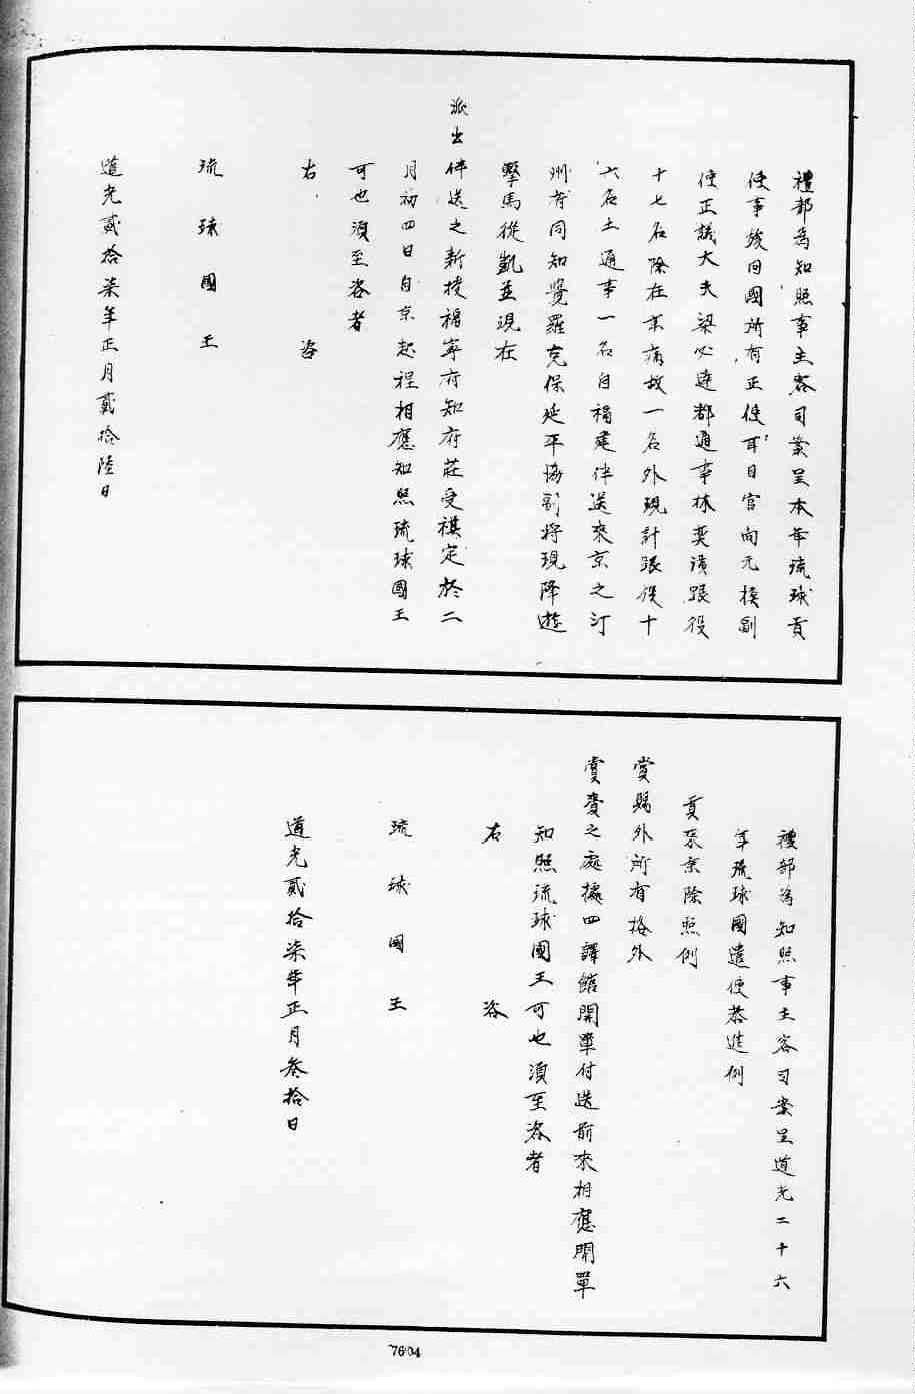 禮部為知照事主客司案呈本年琉球貢
使事竣回國所有正使耳目官向元模副
使正議大夫梁必達都通事林奕濱跟役
十七名除在京病故一名外現計跟役十
六名土通事一名自福建伴送來京之汀
州府同知覺羅克保延平協副將現降遊
擊馬從凱並現在
派出伴送之新授福寧府知府莊受祺定於二
月初四日自京起程相應知照琉球國王
可也須至咨者
右 咨
琉球國王
道光貳拾柒年正月貳拾陸日
禮部為知照事主客司案呈道光二十六
年琉球國遣使恭進例
貢來京除照例
賞賜外所有格外
賞賚之處據四譯館開單付送前來相應開單
知照琉球國王可也須至咨者
右 咨
琉球國王
道光貳拾柒年正月叁拾日
7604